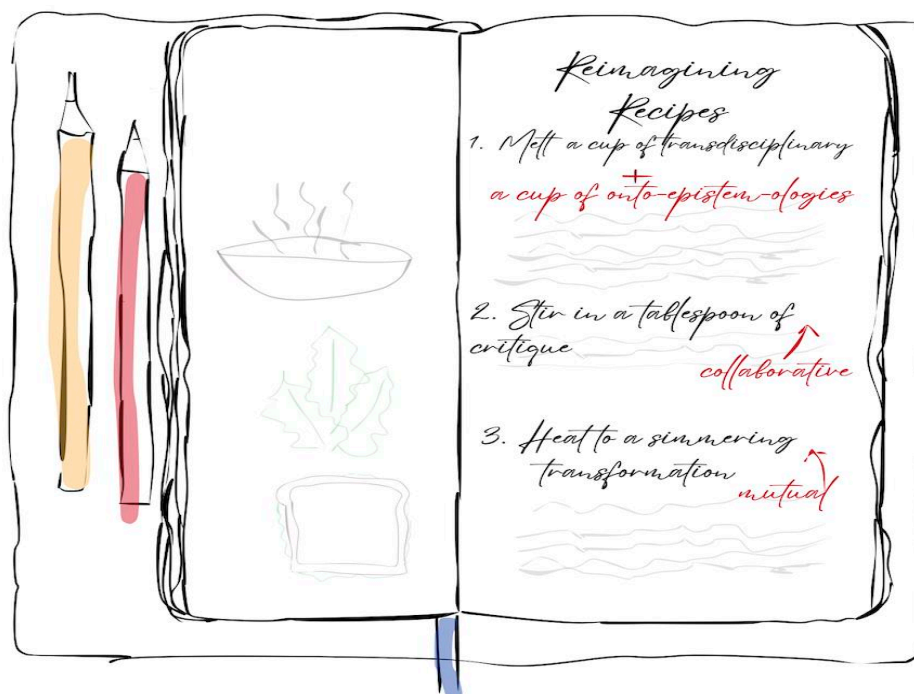 Reimagining
Recipes
1. Melt a cup of transdisciplinary
+
a cup of onto-epistem-ologies
2. Stir in a tablespoon of
critique
collaborative
3. Heat to a simmering
transformation
mutual